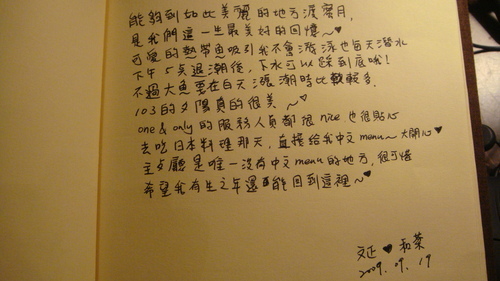 能夠到如此美麗的地方渡蜜月，
是我們這一生最美好的回憶~♥
可愛的熱帶魚吸引我不會游泳也每天潛水
下午5点退潮後，下水可以踩到底哦！
不過大魚要在白天漲潮時比較較多.
103的夕陽真的很美 ~♥
one & only 的服務人員都很 nice 也很貼心
去吃日本料理那天，直接給我中文menu~大開心♥
主廳是唯一沒有中文menu的地方，很可惜
希望我有生之年還能回到這裡~♥
文正 ♥ 和葉
2009. 09. 19